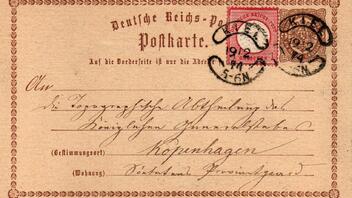 Deutsche Reichs-Post
Postkarte.
Auf die Vorderseite ist nur die Adresse
KIEL
19 2
74
5-6N
KIEL
19 2
74
5-6N
An
die Topographische Abtheilung des
Königlichen Generalstabes
(Bestimmungsort) Kopenhagen
(Wohnung)